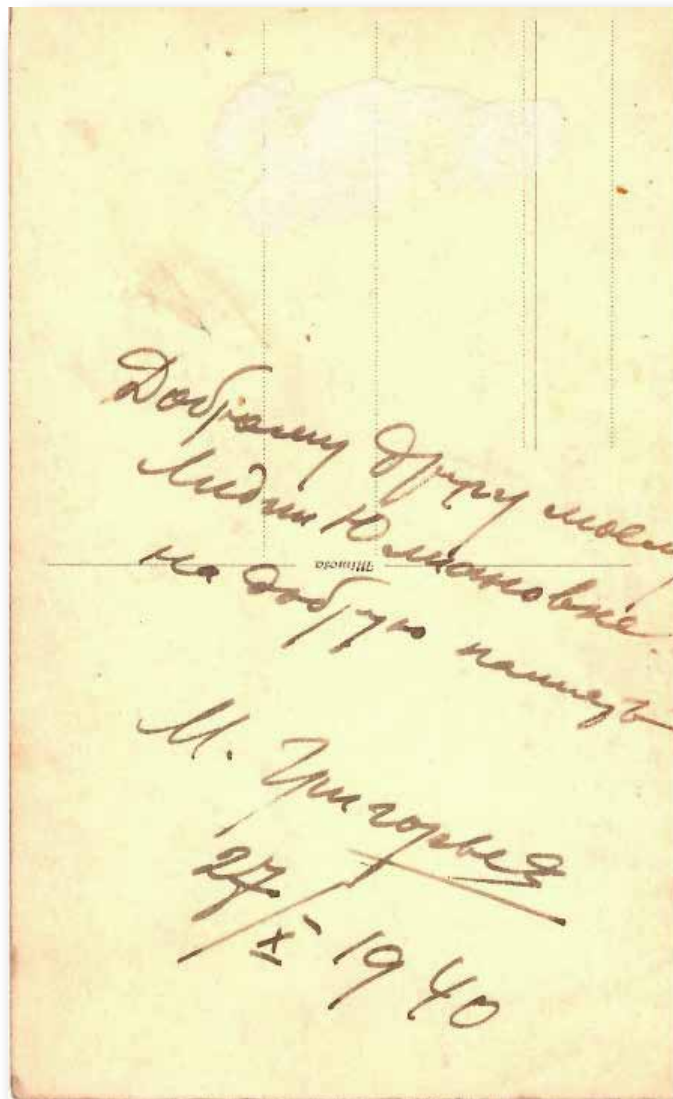 Доброму другу моему
Лидии Юлиановне
Mimosa
на добрую память
М. Григорьев
27/X 1940